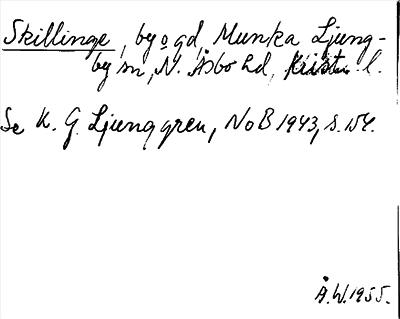 Skillinge, by o gd, Munka Ljung-
by sn, N. Åsbo hd, Krist. l.
Se K. G. Ljunggren, NoB 1943, s. 154.
Å.W. 1955.